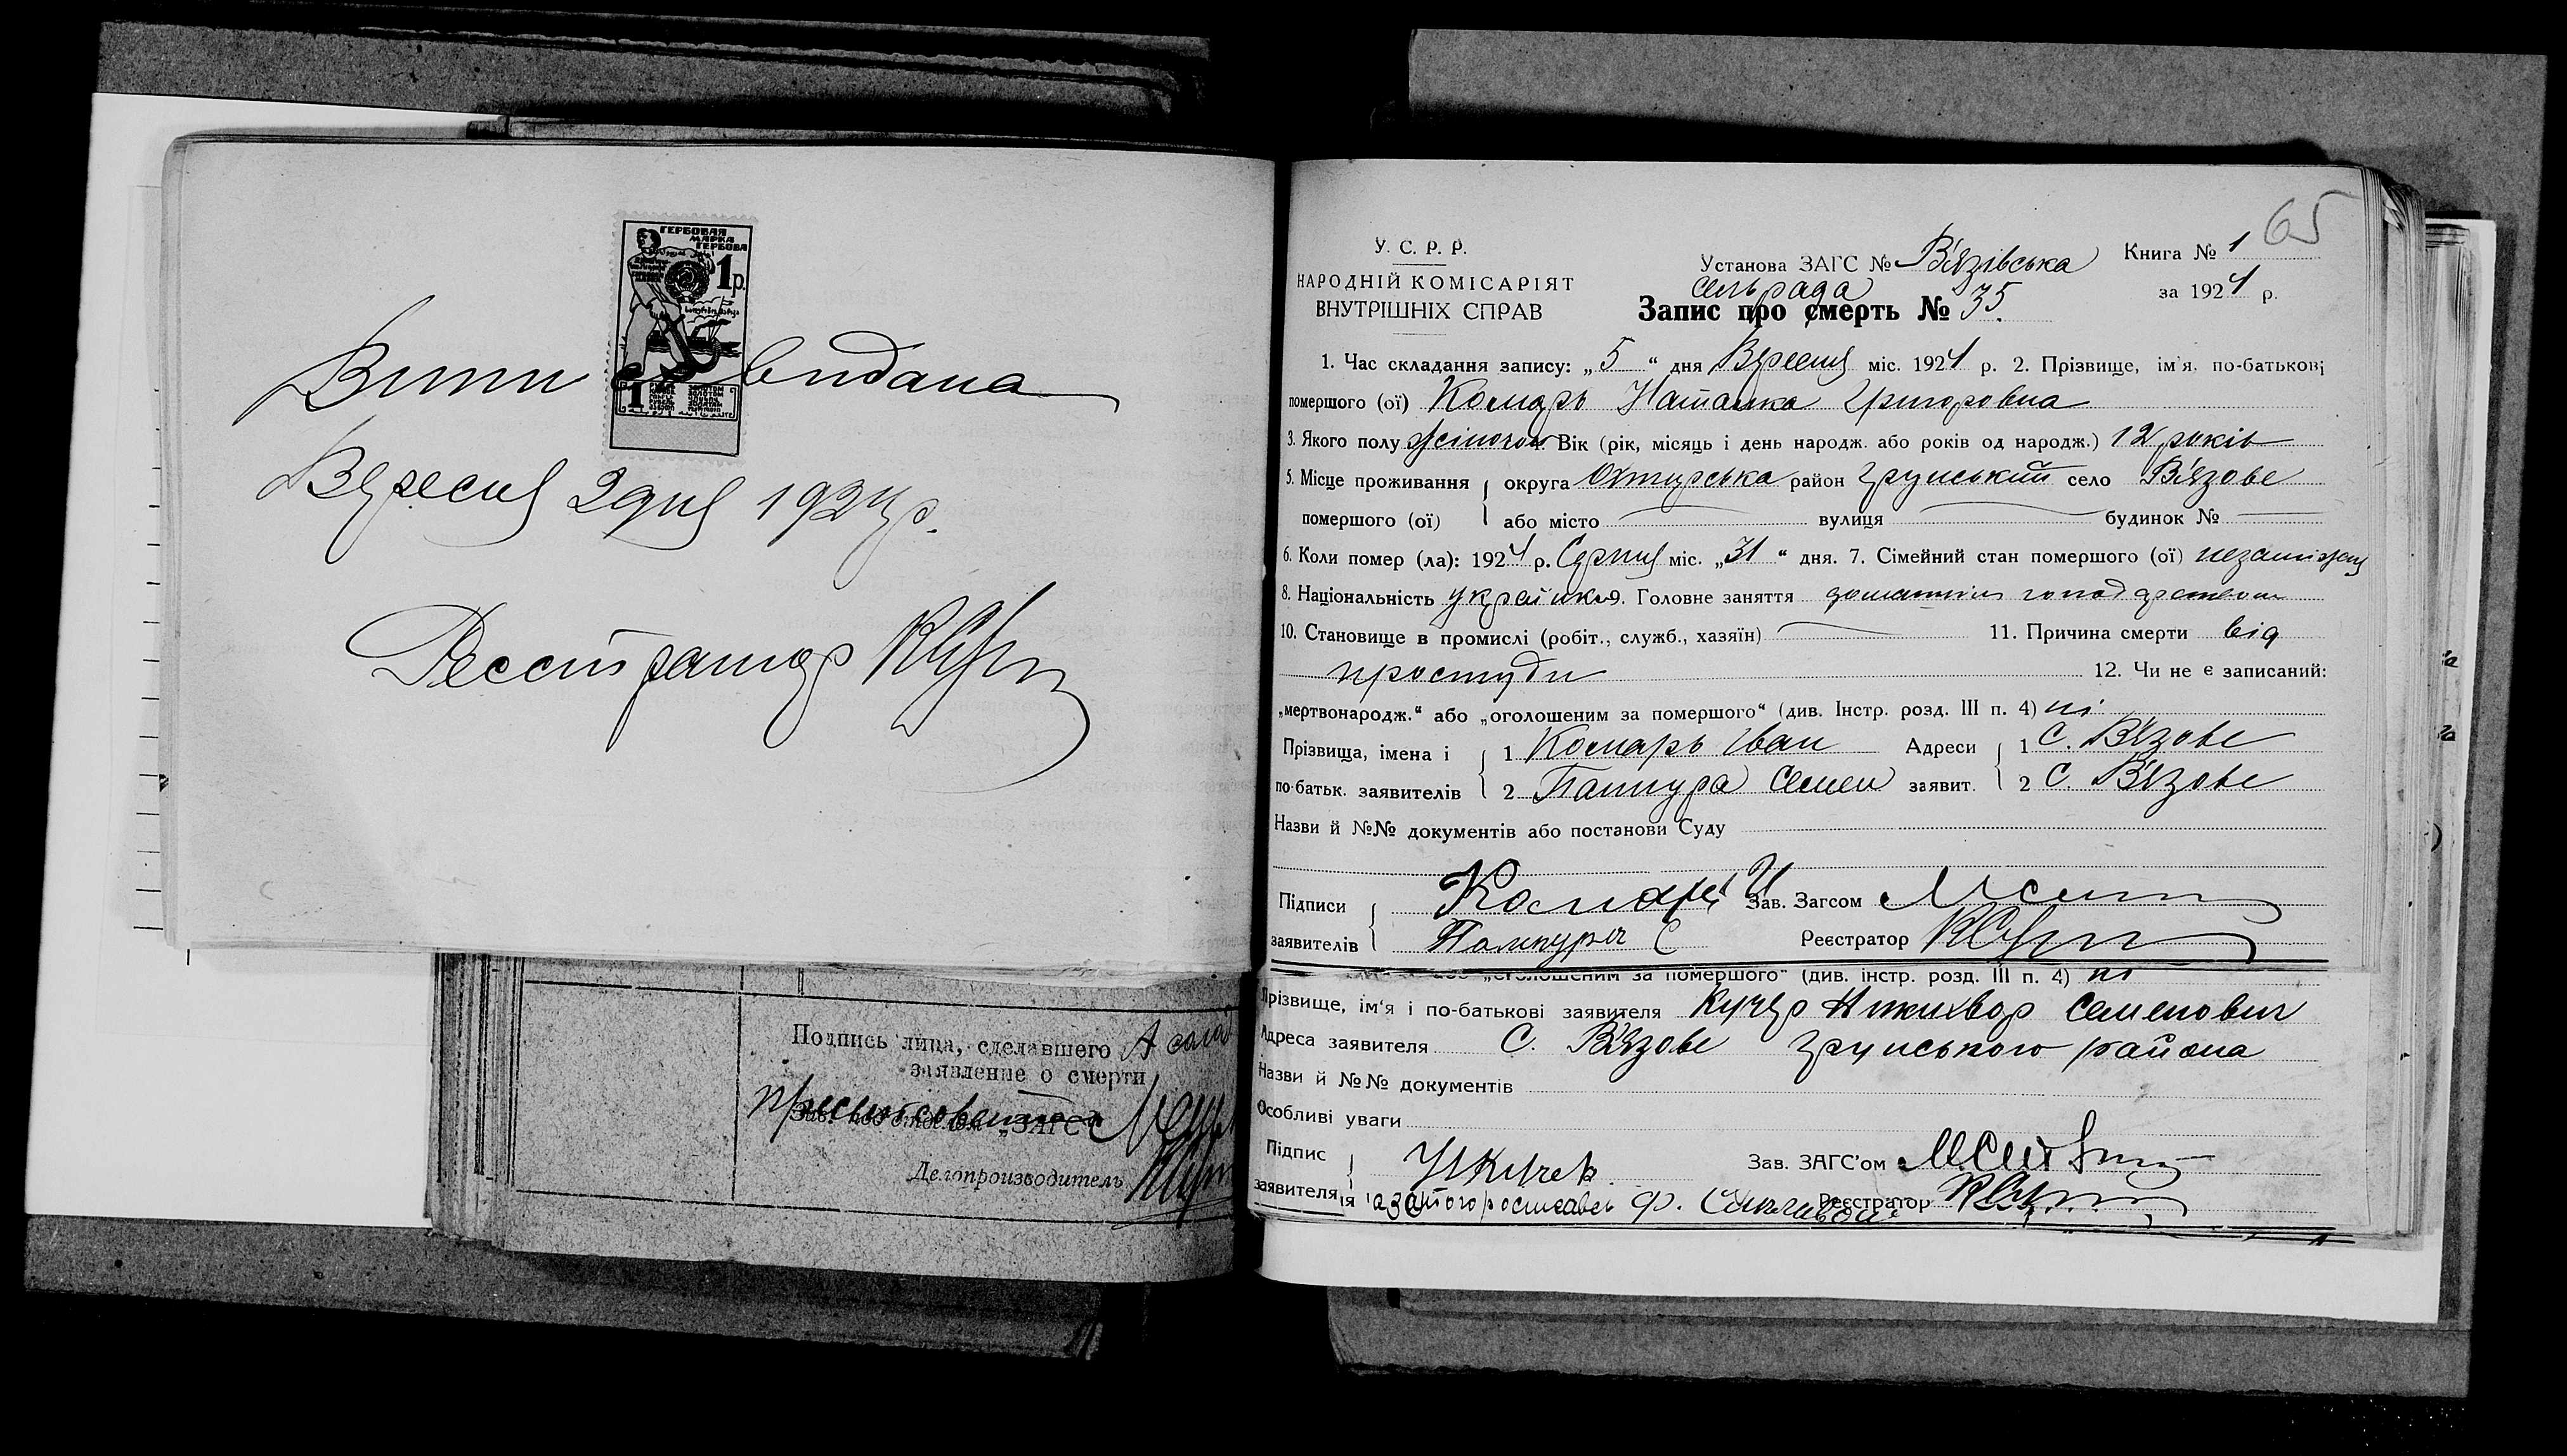 ГЕРБОВАЯ
МАРКА
ГЕРБОВА
1р.
1
Випи видана
Вересня 2 дня 1924 р.
Реєстратор
65
У. С. Р. Р.
НАРОДНІЙ КОМІСАРІЯТ
ВНУТРІШНІХ СПРАВ
Установа ЗАГС № В'язівська
сельрада
Книга № 1
за 1924 р.
Запис про смерть № 35.
1. Час складання запису: „5“ дня Вересня міс. 1924 р. 2. Прізвище, ім'я, по-батькові
помершого (ої) Комарь Наталка Григоровна
3. Якого полу жіночого 4. Вік (рік, місяць і день народж. або років од народж.) 12 років
5. Місце проживання округа Охтирська район Грунський село В'язове
помершого (ої) або місто вулиця будинок №
6. Коли помер (ла): 1924 р. Серпня міс. „31“ дня. 7. Сімейний стан помершого (ої) незаміжня
8. Національність українка 9. Головне заняття домашнім господарством
10. Становище в промислі (робіт., служб., хазяїн) 11. Причина смерти від
простуди 12. Чи не є записаний:
„мертвонародж.“ або „оголошеним за помершого“ (див. Інстр. розд. III п. 4) ні
Прізвища, імена і 1 Комарь Іван Адреси 1 С. В'язове
по-батьк. заявителів 2 Пампура Семен заявит. 2 С. В'язове
Назви й №№ документів або постанови Суду
Підписи Комарь И Зав. Загсом
заявителів Пампура С Реєстратор
„оголошеним за помершого“ (див. інстр. розд. III п. 4) ні
Прізвище, ім'я і по-батькові заявителя Кучер Никихвор Семенович
Адреса заявителя С. В'язове Грунського района
Назви й №№ документів
Особливі уваги
Підпис Зав. ЗАГС'ом
заявителя Реєстратор
Подпись лица, сделавшего
заявление о смерти
„ЗАГС“
Делопроизводитель